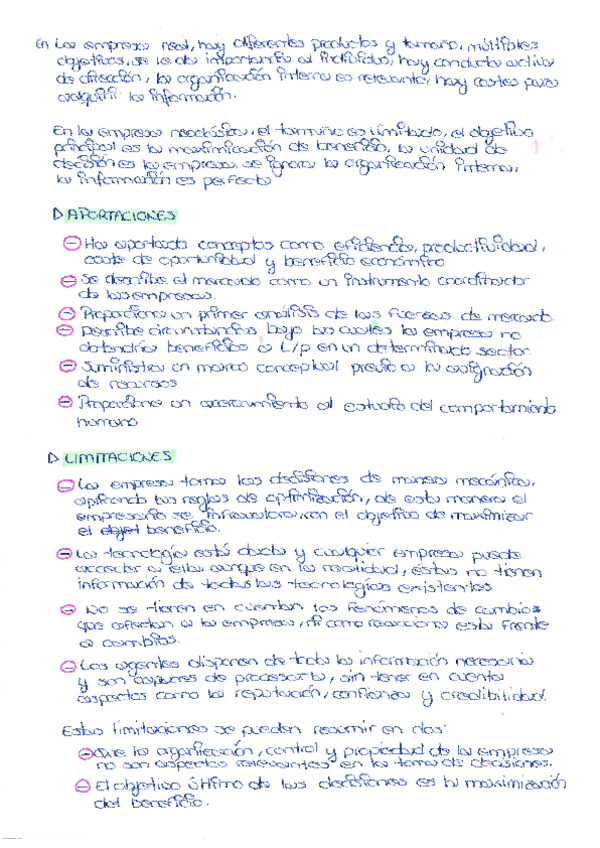 En la empresa real, hay diferentes productos y tamaño, múltiples
objetivos, se le da importancia al individuo, hay conducta activa
de dirección, la organización interna es relevante, hay costes para
adquirir la información.
En la empresa neoclásica, el tamaño es limitado, el objetivo
principal es la maximización de beneficio, la unidad de
decisión es la empresa, se ignora la organización interna,
la información es perfecta
▷ APORTACIONES
- Ha aportado conceptos como eficiencia, productividad,
coste de oportunidad y beneficio económico
- Se describe el mercado como un instrumento coordinador
de las empresas.
- Proporciona un primer análisis de las fuerzas de mercado
- Describe circunstancias bajo las cuales la empresa no
obtendría beneficios a L/p en un determinado sector
- Suministra un marco conceptual previo a la asignación
de recursos
- Proporciona un acercamiento al estudio del comportamiento
humano
▷ LIMITACIONES
- La empresa toma las decisiones de manera mecánica,
aplicando las reglas de optimización, de esta manera el
empresario se involucra con el objetivo de maximizar
el objet beneficio.
- La tecnología está dada y cualquier empresa puede
acceder a ella aunque en la realidad, estas no tienen
información de todas las tecnologías existentes
- No se tienen en cuentan los fenómenos de cambios
que afectan a la empresa, ni como reacciona esta frente
a cambios.
- Los agentes disponen de toda la información necesaria
y son capaces de procesarla, sin tener en cuenta
aspectos como la reputación, confianza y credibilidad.
Estas limitaciones se pueden resumir en dos:
- Que la organización, control y propiedad de la empresa
no son aspectos relevantes en la toma de decisiones.
- El objetivo último de las decisiones es la maximización
del beneficio.